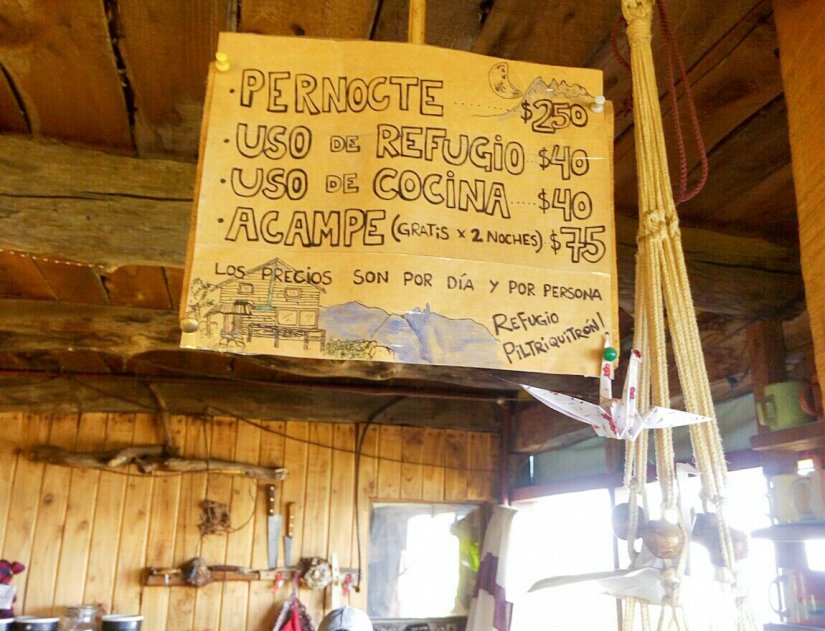 · PERNOCTE ........ $250
· USO DE REFUGIO .. $40
· USO DE COCINA .... $40
· ACAMPE (GRATIS X 2 NOCHES) $75
LOS PRECIOS SON POR DÍA Y POR PERSONA
REFUGIO
PILTRIQUITRÓN!